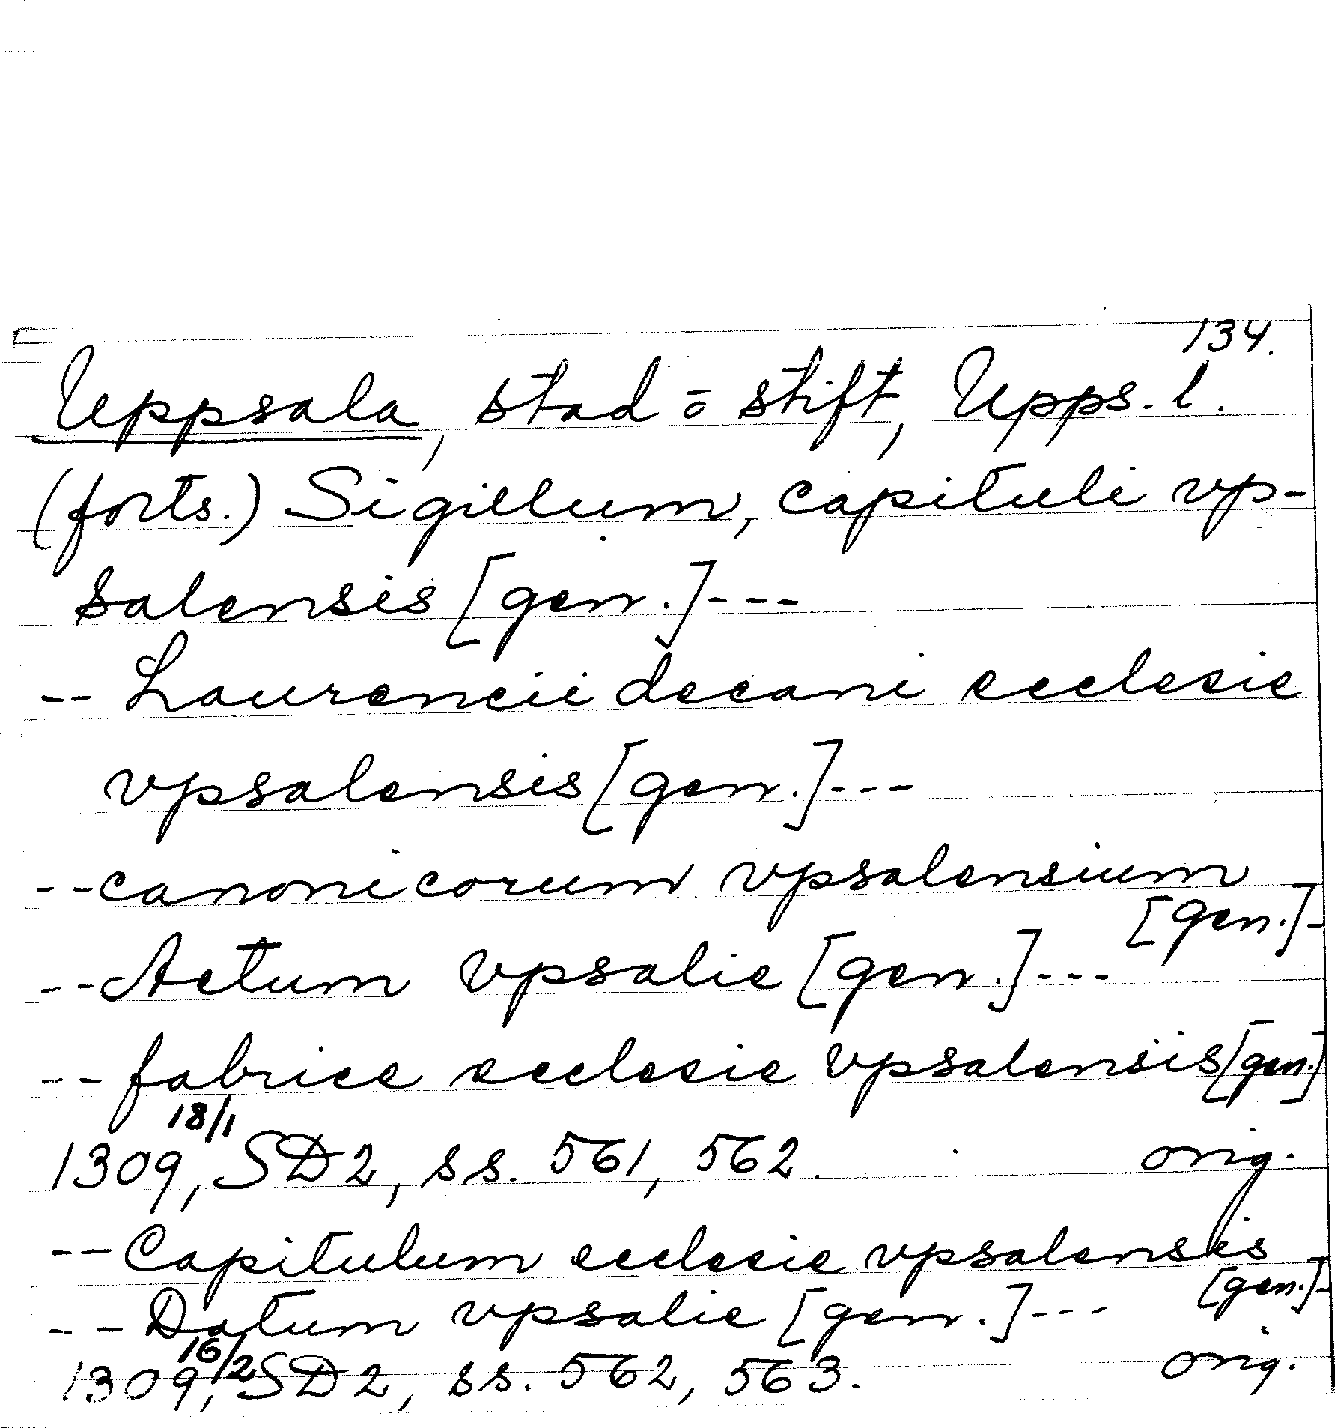 134.
Uppsala, stad o stift, Upps. l.
(forts.) Sigillum, capituli vp-
salensis [gen.]---
-- Laurencii decani ecclesie
vpsalensis [gen.]---
--canonicorum vpsalensium
[gen.]-
--Actum vpsalie [gen.]---
--fabrice ecclesie vpsalensis [gen.]
1309 18/1, SD2, ss. 561, 562. orig.
--Capitulum ecclesie vpsalensis
[gen.]-
--Datum vpsalie [gen.]---
1309 16/2, SD2, ss. 562, 563. orig.